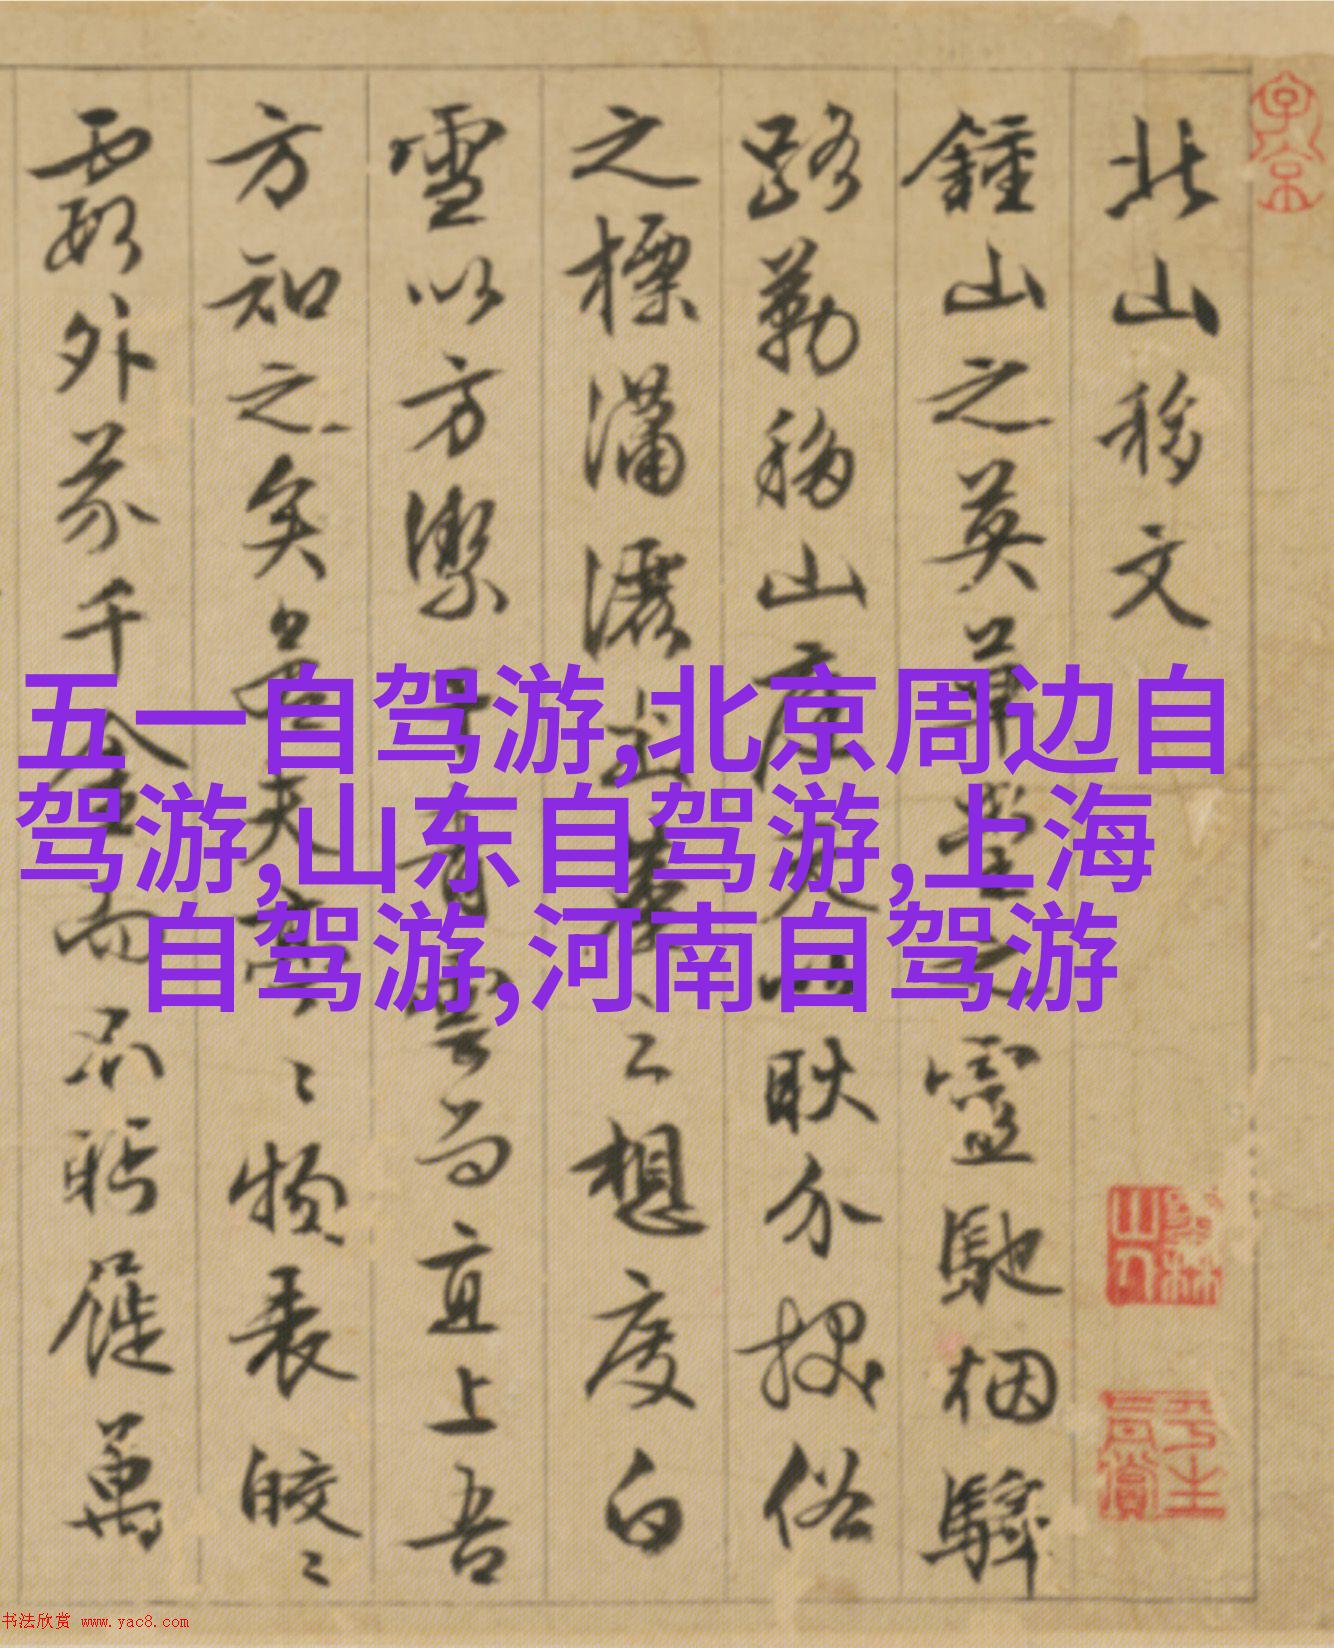 北山移文
鍾山之英草堂之靈馳烟驛
路勒移山庭夫以耿介拔俗
之標瀟灑出塵之想度白
雪以方潔干青雲而直上吾
方知之矣若其亭〻物表皎〻
霞外芥千金而不眄屣萬
五一自驾游,北京周边自
驾游,山东自驾游,上海
自驾游,河南自驾游
子京
墨林山人
平生真賞
书法欣赏 www.yac8.com